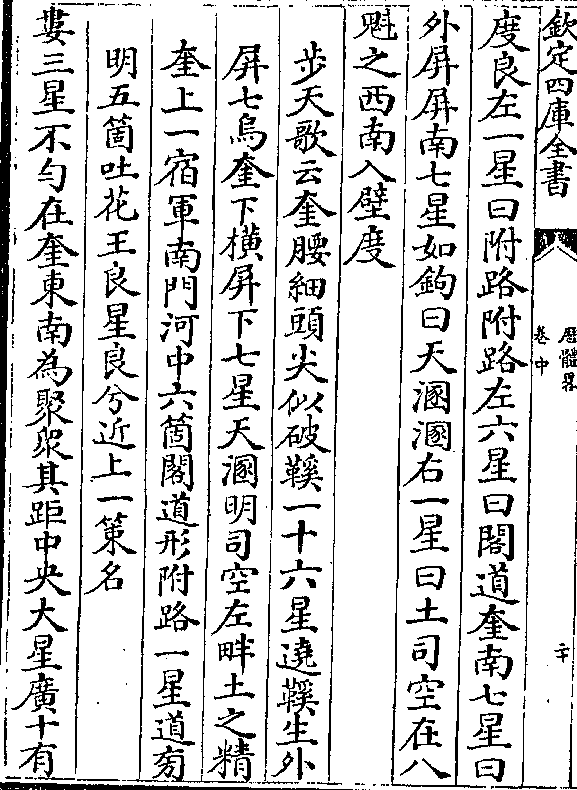 欽定四庫全書
曆體畧
卷中
二十
度良左一星曰附路附路左六星曰閣道奎南七星曰
外屏屏南七星如鉤曰天溷溷右一星曰土司空在八
魁之西南入壁度
步天歌云奎腰細頭尖似破鞵一十六星遶鞵生外
屏七烏奎下橫屏下七星天溷明司空左畔土之精
奎上一宿軍南門河中六箇閣道形附路一星道旁
明五箇吐花王良星良兮近上一策名
婁三星不勻在奎東南為聚眾其距中央大星廣十有